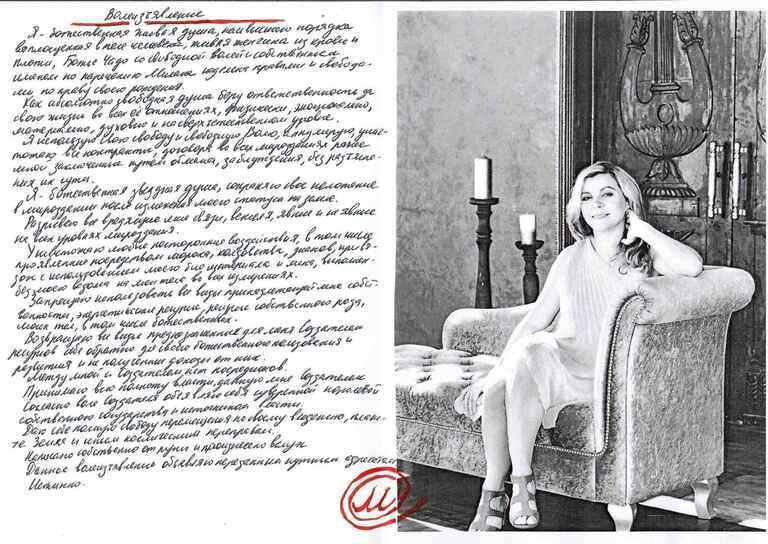 Волеизъявление
Я - божественная живая душа, наивысшего порядка
воплощенная в теле человека, живая женщина из крови и
плоти, Божье Чадо со свободной волей и собственным
именем по наречению Милана наделена правами и свобода-
ми по праву своего рождения.
Как абсолютно свободная душа беру ответственность за
свою жизнь во всех её отношениях, физически, эмоционально,
материально, духовно и на сверхъестественном уровне.
Я использую свою свободу и свободную Волю, аннулирую, унич-
тожаю все контракты, договора во всех мирозданиях ранее
мною заключенные путем обмана, заблуждения, без разъясне-
ния их сути.
Я - божественная звездная душа, сохраняю своё положение
в мироздании после изменения моего статуса на земле.
Разрываю все вредящие мне связи, векселя, явные и не явные
на всех уровнях мироздания.
Уничтожаю любые посторонние воздействия, в том числе
проявленные посредством морока, колдовства, знаков, привя-
зок с использованием моего био материала и имя, выполнен-
без моего ведома на мои тела во всех измерениях.
Запрещаю использовать все виды принадлежащей мне собст-
венности, энергетические ресурсы, ресурсы собственного рода,
моих тел, в том числе божественных.
Возвращаю все виды предназначенных для меня Создателем
ресурсов себе обратно до своего божественного пользования и
развития и не полученные доходы от них.
Между мной и Создателем нет посредников.
Принимаю всю полноту власти, данную мне Создателем
Согласно воле Создателя объявляю себя суверенной королевой
собственного государства и источником власти.
Даю себе полную свободу перемещения по своему
Земля и иным космическим
Написано собственно от руки и произнесено вслух.
Данное волеизъявление объявляю
Истинно.
М